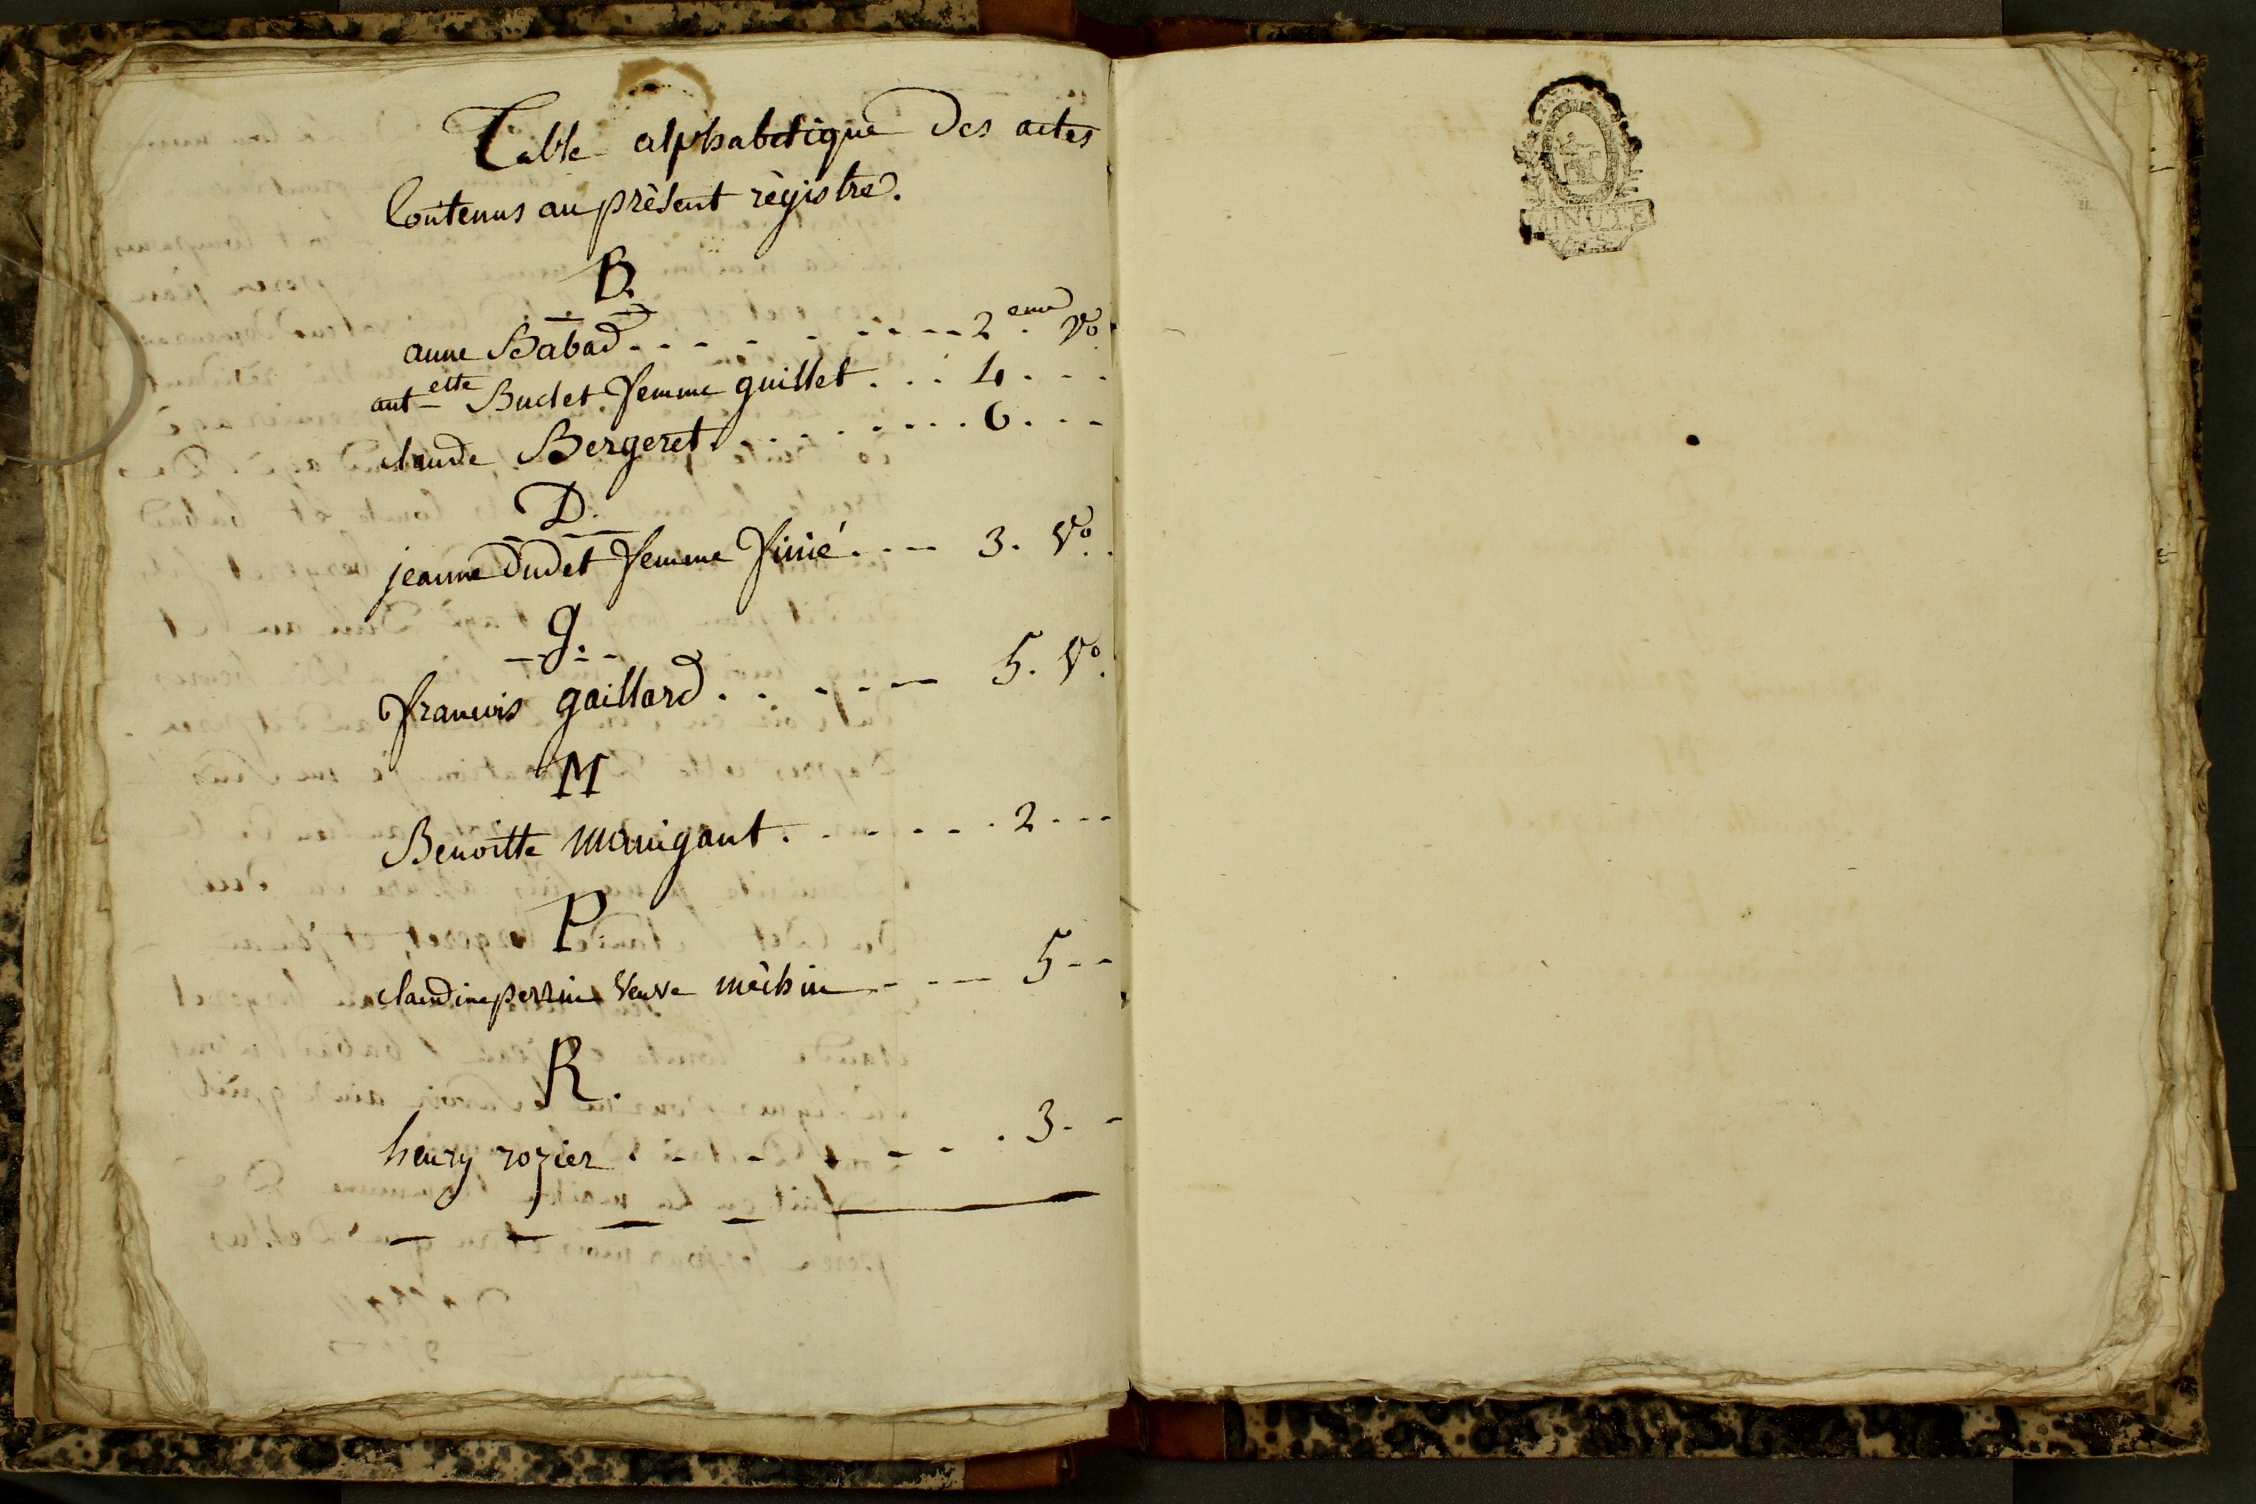 Table alphabetique Des actes
Contenus au present règistre.
B.
anne Babad 2eme Vo.
antette Buclet femme guillet 4
claude Bergeret 6
D.
jeanne Dudet femme finié 3. Vo.
g.
francois gaillard 5. Vo.
M
Benoitte monigaut 2
P
claudine perrin veuve mèchin 5
R.
henry rozier 3
MINUTE